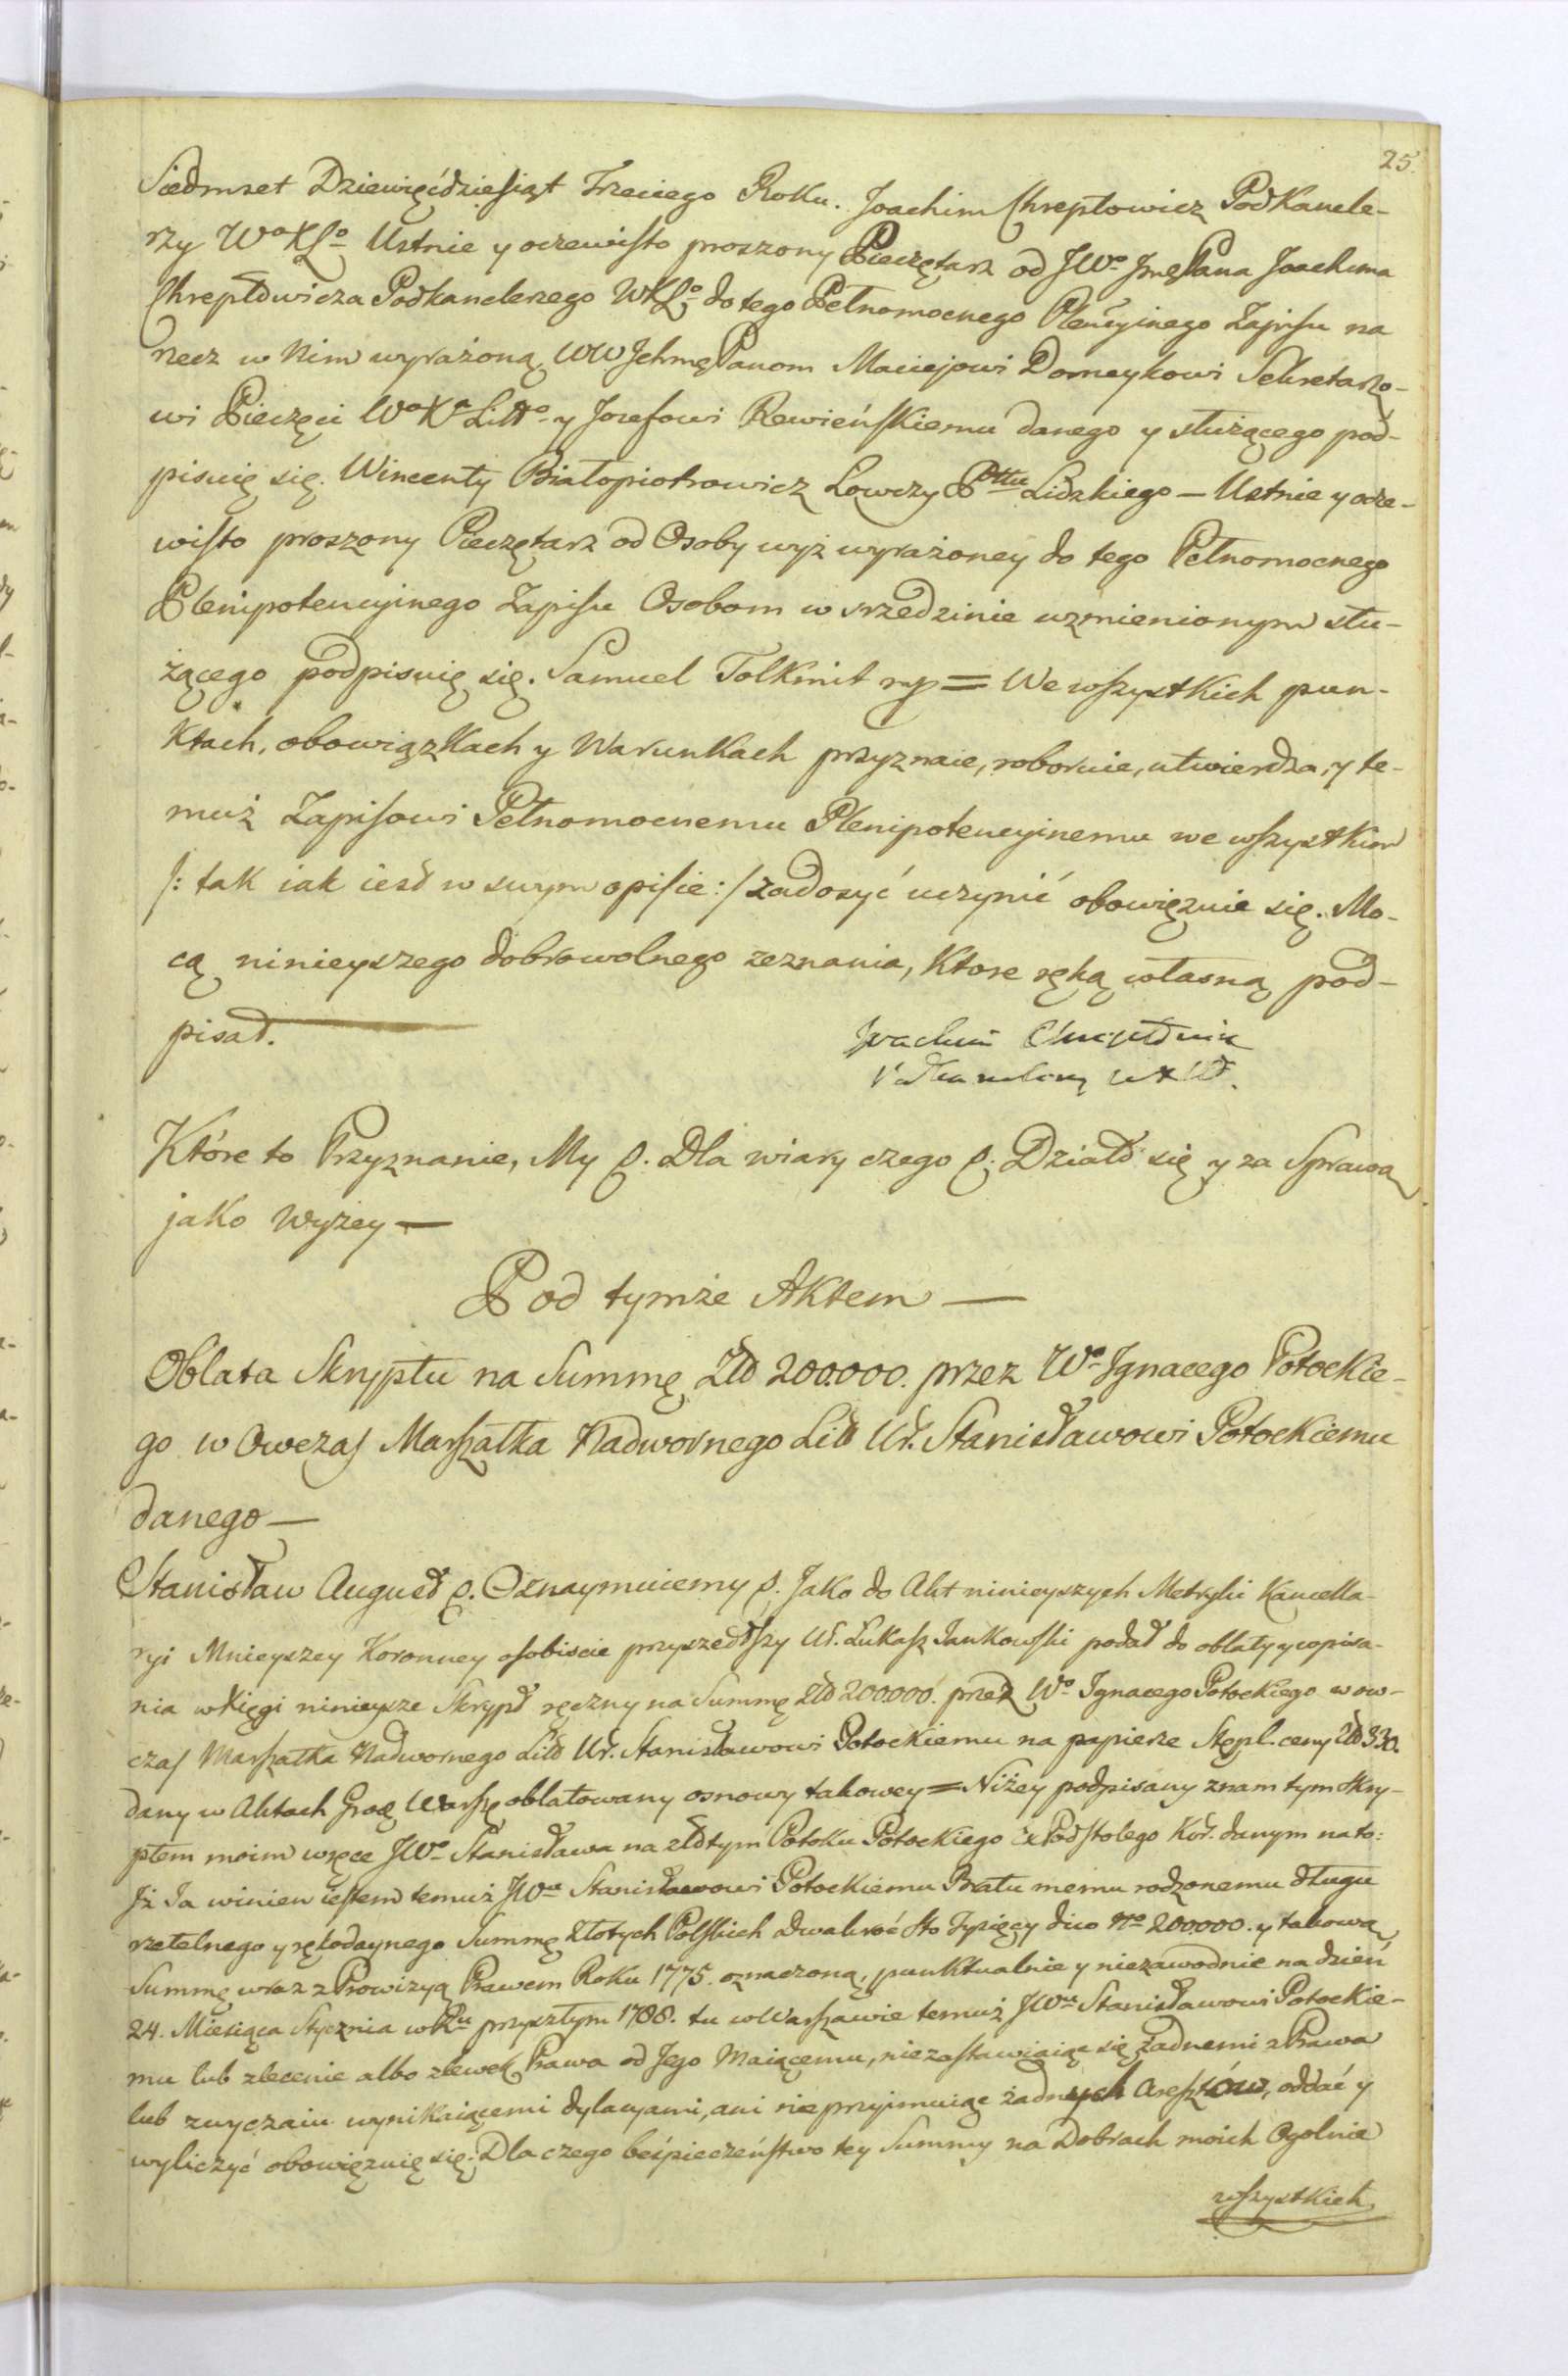 25.
Siedmset Dziewięćdziesiąt Trzeciego Roku. Joachim Chreptowicz PodKancle-
rzy Wo XLo Ustnie y oczewisto proszony Pieczętarz od JWo Jmę Pana Joachima
Chreptowicza Podkanclerzego WXLo do tego Pełnomocnego Plencyinego Zapisu na
rzecz w Nim wyrażoną WW Jchmę Panom Maciejowi Domeykowi Sekretarzo-
wi Pieczęci Wo Xa Littо y Jozefowi Rewieńskiemu danego y służącego pod-
pisuię się. Wincenty Białopiotrowicz Łowczy Pttu Lidzkiego — Ustnie y ocze-
wisto proszony Pieczętarz od Osoby wyż wyrażoney do tego Pełnomocnego
Plenipotencyinego Zapisu Osobom w srzedzinie wzmienionym słu-
żącego podpisuię się. Samuel Tolkmit mp = We wszystkich pun-
Ktach, obowiązkach y Warunkach przyznaie, roboruie, utwierdza, y te-
muż Zapisowi Pełnomocnemu Plenipotencyinemu we wszystkim
/: tak iak iest w swym opisie :/ zadosyć uczynić obowięzuie się. Mo-
cą ninieyszego dobrowolnego zeznania, Ktore ręką własną pod-
pisał.
Joachim Chreptowicz
Podkanclerzy WXLit.
Które to Przyznanie, My p. Dla wiary czego p. Działo się y za Sprawą
jako Wyżey —
Pod tymże Aktem —
Oblata Skryptu na Summę Złł 200.000. przez Wo Jgnacego Potockie-
go w Owczas Marszałka Nadwornego Litt Ur. Stanisławowi Potockiemu
danego —
Stanisław August p. Oznaymuiemy p. Jako do Akt ninieyszych Metryki Kancella-
ryi Mnieyszey Koronney osobiscie przyszedłszy Ur. Łukasz Jankowski podał do oblaty y wpisa-
nia w Xięgi ninieysze Skrypt ręczny na Summę Złł 200000. przez Wo Jgnacego Potockiego w ow-
czas Marszałka Nadwornego Litt Ur. Stanisławowi Potockiemu na papierze Stępl. ceny Złł 330.
dany w Aktach Grod Warszę oblatowany osnowy takowey = Niżey podpisany znam tym Skry-
ptem moim w ręce JWo Stanisława na złotym Potoku Potockiego Ex Podstolego Kor. danym na to:
Jż Ja winien iestem temuż JWu Stanisławowi Potockiemu Bratu memu rodzonemu długu
rzetelnego y rękodaynego Summę Złotych Polskich dwakroć sto Tysięcy dico No 200.000. y takową
Summę wraz z Prowizyą Prawem Roku 1775. oznaczoną, punktualnie y niezawodnie na dzień
24. Miesiąca Stycznia w Ru przyszłym 1788. tu w Warszawie temuż JWu Stanisławowi Potockie-
mu lub zlecenie albo zlewek Prawa od Jego Maiącemu, niezastawiaiąc się żadnemi z Prawa
lub zwyczaiu wynikaiącemi dylacyami, ani nieprzyimuiąc żadnych Aresztów, oddać y
wyliczyć obowięzuię się: Dla czego beśpieczeństwo tey Summy na Dobrach moich Ogolnie
wszystkich